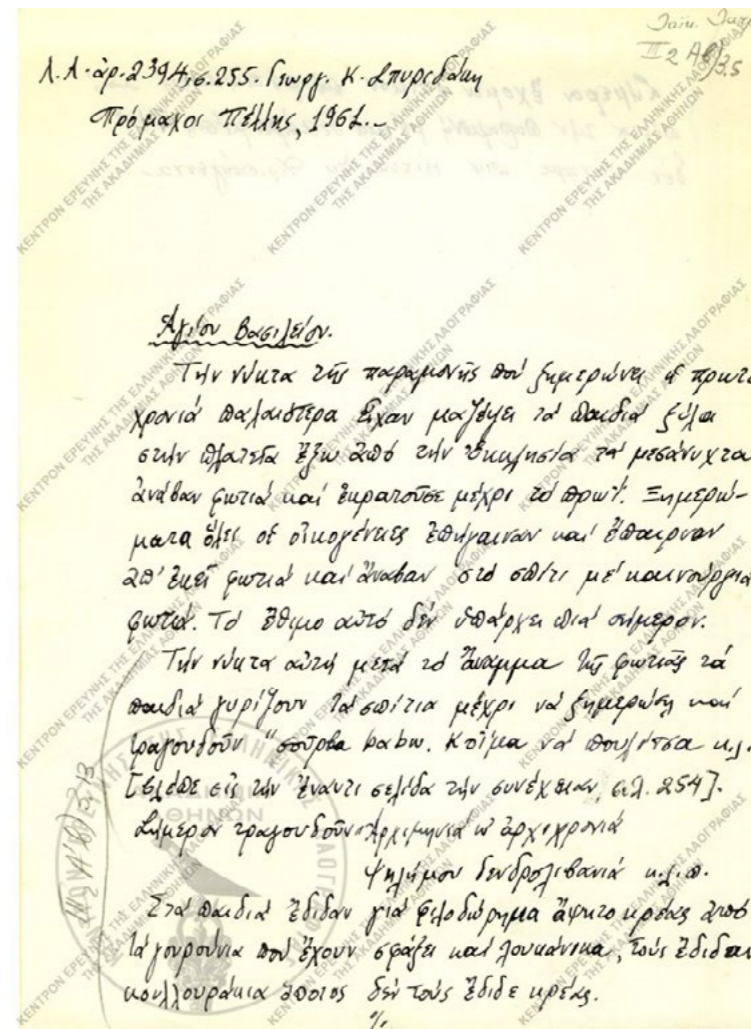 Λαϊκ.
III 2 Αβ) 3.5
Λ.Α. ἀρ. 2394, σ. 255. Γεωργ. Κ. Σπυριδάκη
Πρόμαχοι Πέλλης, 1961.-
Ἁγίου Βασιλείου.
Τήν νύκτα τῆς παραμονῆς πού ξημερώνει ἡ πρωτο
χρονιά παλαιότερα εἶχαν μαζέψει τά παιδιά ξύλα
στήν πλατεῖα ἔξω ἀπό τήν ἐκκλησία τά μεσάνυχτα
ἀνάβαν φωτιά καί ἐκρατοῦσε μέχρι τό πρωί. Ξημερώ-
ματα ὅλες οἱ οἰκογένειες ἐπήγαιναν καί ἔπαιρναν
ἀπ' ἐκεῖ φωτιά καί ἄναβαν στό σπίτι μέ καινούργια
φωτιά. Τό ἔθιμο αὐτό δέν ὑπάρχει πιά σήμερον.
Τήν νύκτα αὐτή μετά τό ἄναμμα τῆς φωτιᾶς τά
παιδιά γυρίζουν τά σπίτια μέχρι νά ξημερώση καί
τραγουδοῦν "σούρβα babω. Κόλμα νά πουλίτσα κ.λ.
[βλέπε εἰς τήν ἔναντι σελίδα τήν συνέχειαν, σελ. 254].
Σήμερον τραγουδοῦν: Ἀρχιμηνιά κι ἀρχιχρονιά
Ψηλή μου δενδρολιβανιά κ.λ.π.
Στά παιδιά ἔδιδαν γιά φιλοδώρημα ἄψητο κρέας ἀπό
τά γουρούνια πού ἔχουν σφάξει καί λουκάνικα, τούς ἔδιδαν
κουλλουράκια ὅποιος δέν τούς ἔδιδε κρέας.
·/.
ΚΕΝΤΡΟΝ ΕΡΕΥΝΗΣ ΤΗΣ ΕΛΛΗΝΙΚΗΣ ΛΑΟΓΡΑΦΙΑΣ
ΤΗΣ ΑΚΑΔΗΜΙΑΣ ΑΘΗΝΩΝ